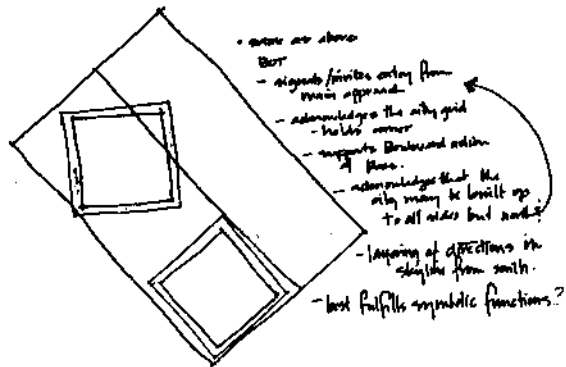 • same as above
BUT
- signals/invites entry from
main approach
- acknowledges the city grid
- holds corner
- supports Boulevard action
of
- acknowledges that the
city may be built up
to all sides but north
- layering of directions in
skyline from south.
- best fulfills symbolic functions?